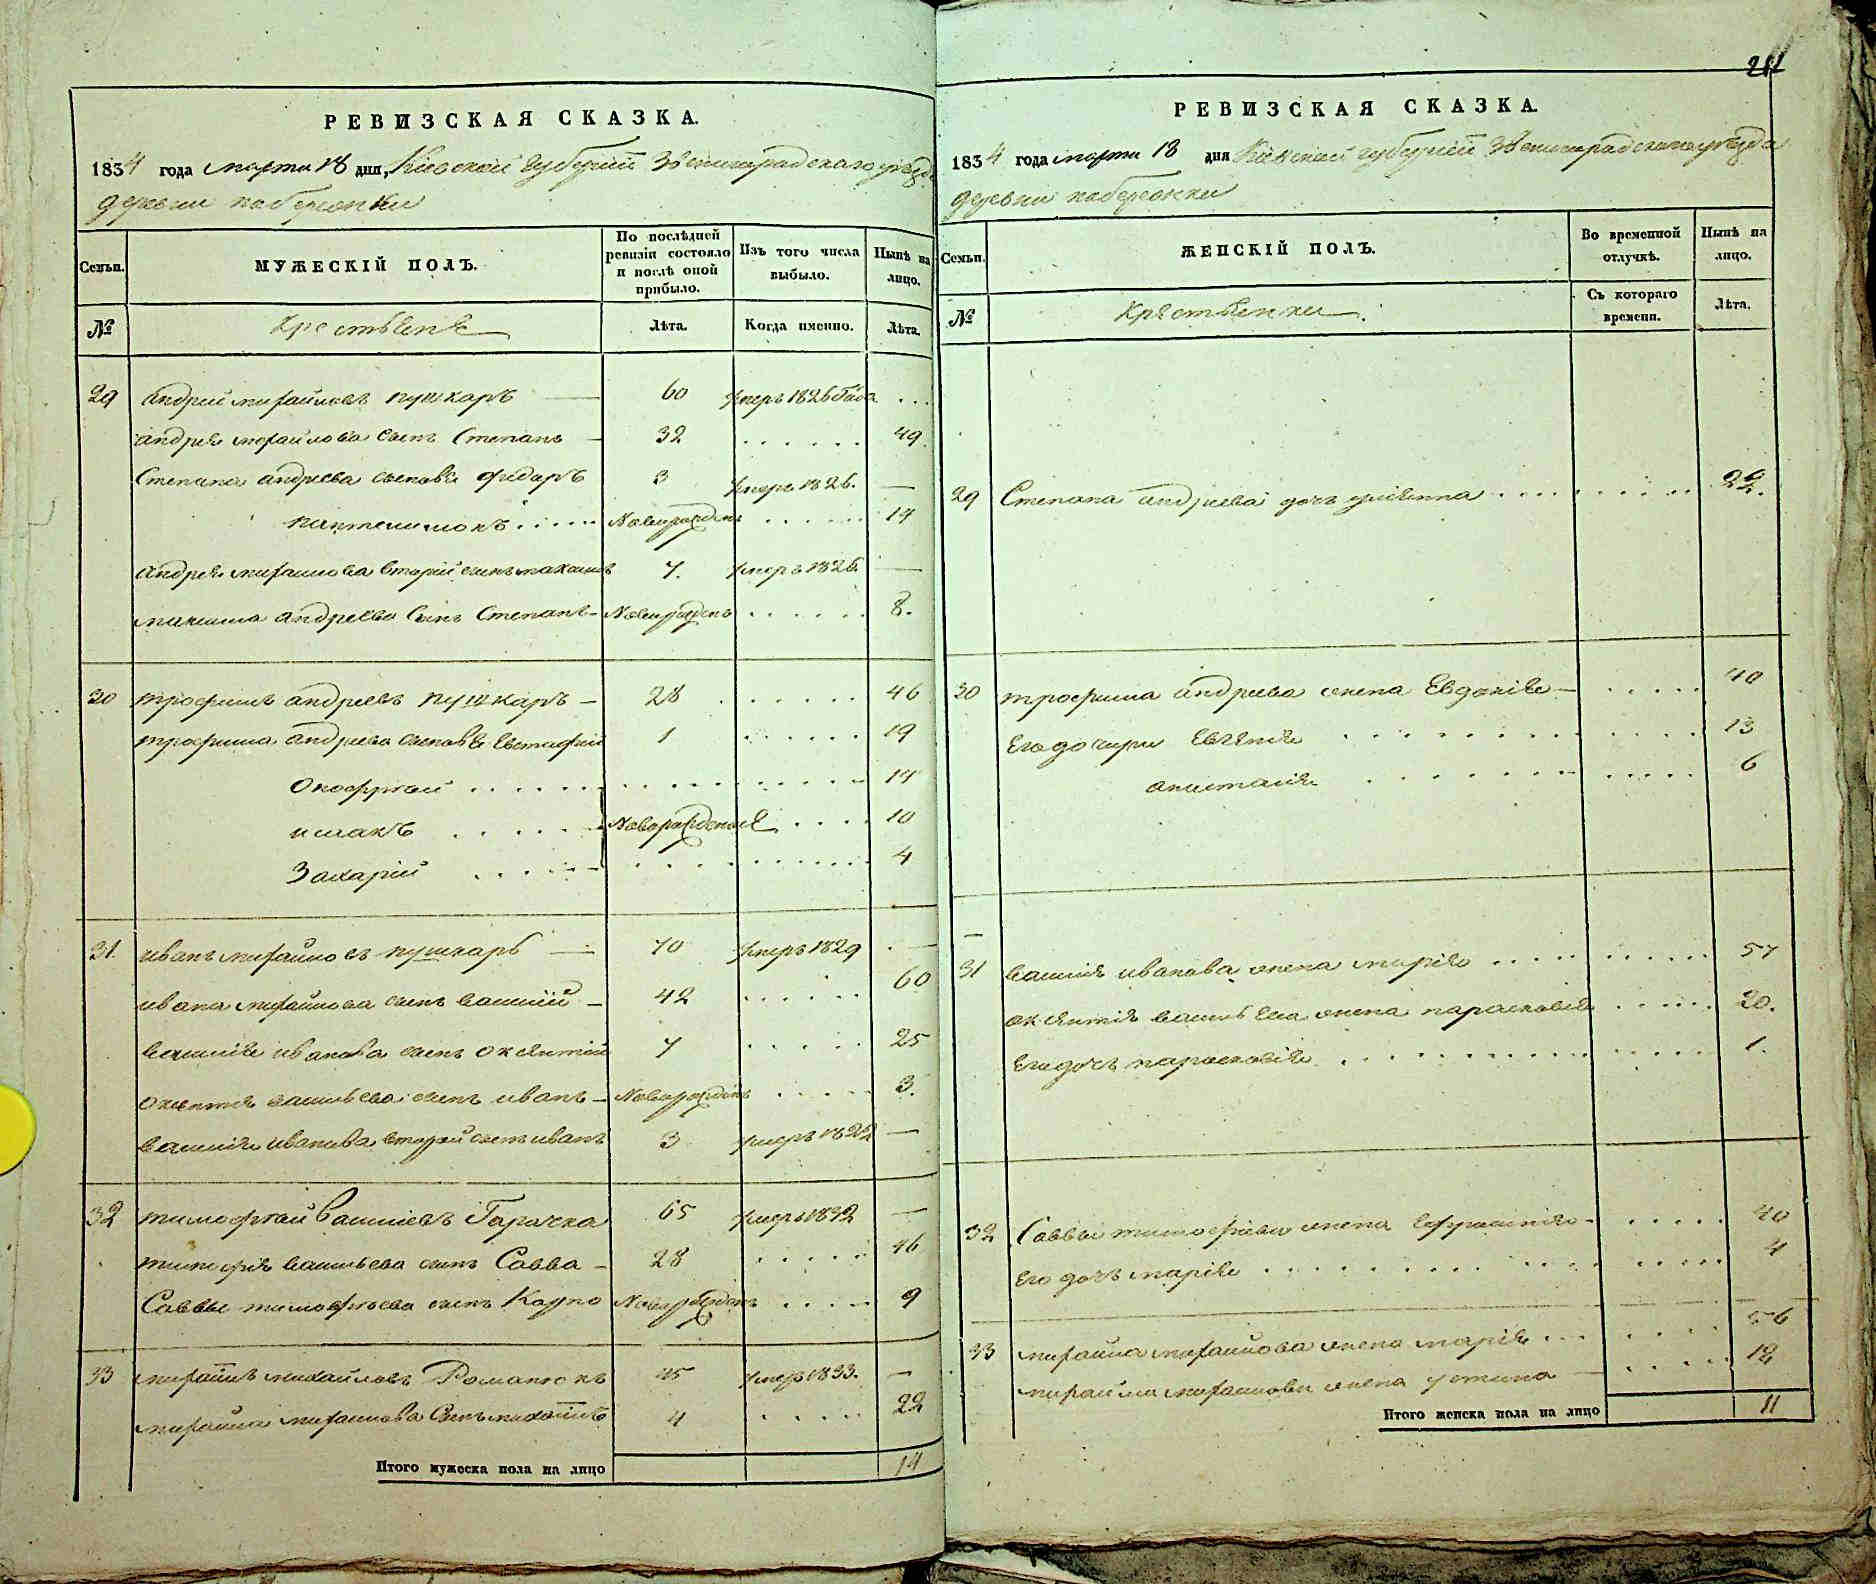 РЕВИЗСКАЯ СКАЗКА.
1834 года марта 18 дня, Кіевской губерніи Звенигородскаго уезда
деревни побережки
Семьи. МУЖЕСКІЙ ПОЛЪ. По послѣдней ревизіи состояло и послѣ оной прибыло. Изъ того числа выбыло. Нынѣ на лицо.
№ Крестьяне Лѣта. Когда именно. Лѣта.
29 Андрей михайловъ пушкаръ 60 умеръ 1826 года . . .
андрея михайлова сынъ Степанъ 32 49
Степана андреева сыновья федоръ 3 умеръ 1826. —
пантелимонъ Новорожденъ 14
Андрея михайлова вторый сынъ 7. умеръ 1826 —
андреева сынъ Степанъ Новорожденъ 8.
30 трофимъ андреевъ пушкаръ 28 46
трофима андреева сыновья Евстафій 1 19
14
исаакъ Новорожденные 10
Захарій 4
31. иванъ михайловъ пушкарь 70 умеръ 1829 —
ивана михайлова сынъ василій 42 60
василія иванова сынъ оксентій 7 25
оксентія васильева сынъ иванъ Новорожденъ 3.
василія иванова вторый сынъ иванъ 3 умеръ 1822 —
32 тимофтей васильевъ 65 умеръ 1832 —
тимофея васильева сынъ Савва 28 46
Саввы тимофтева сынъ Карпо Новорожденъ 9
33 михайло михайловъ Романюкъ 45 умеръ 1833. —
михайла михайлова сынъ михайло 4 22
Итого мужеска пола на лицо 14
211
РЕВИЗСКАЯ СКАЗКА.
1834 года марта 18 дня Кіевской губерніи Звенигородскаго уезда
деревни побережки
Семьи. ЖЕНСКІЙ ПОЛЪ. Во временной отлучкѣ. Нынѣ на лицо.
№ Крестьянки. Съ котораго времени. Лѣта.
29 Степана андреева дочь 22.
30 трофима андреева жена Евдокія 40
Его дочери Евгенія 13
анастасія 6
31 василія иванова жена марія 57
оксентія васильева жена парасковія 20.
Его дочь парасковія 1.
32 Саввы тимофеева жена 40
Его дочь марія 4
33 михайла михайлова жена марія 56
михайла михайлова жена устина 18
Итого женска пола на лицо 11